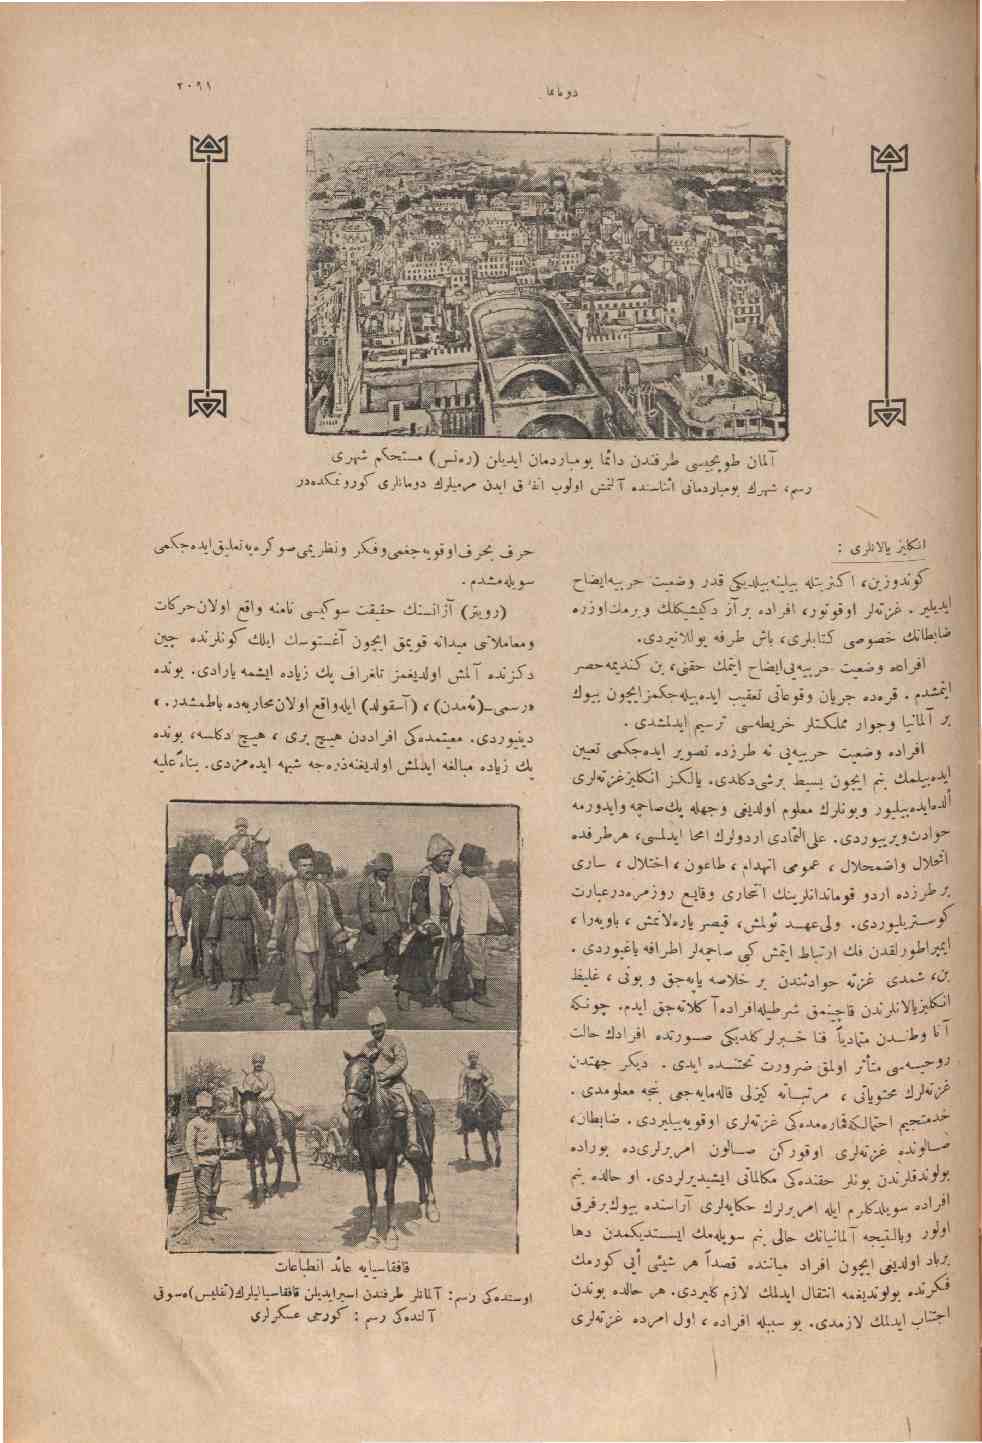 دونانما
٢٠٩١
آلمان طوپجیسی طرفندن دائما بومباردمان ایدیلن (رەنس) مستحکم شهری
رسم، شهرك بومباردمانی اثناسنده آلنمش اولوب انفلاق ایدن مرمیلرك دومانلری کورونمکده‌در
انکلیز یالانلری :
کوندوزین، اکثریتله بیلینه‌بیلدیکی قدر وضعیت حربیه‌ایضاح
ایدیلیر . غزته‌لر اوقونور، افراده بر آز دکیشیکلك ویرمك‌اوزره
ضابطانك خصوصی کتابلری، باش طرفه یوللانیردی.
افراده وضعیت حربیه‌یی‌ایضاح ایتمك حقنی، بن کندیمه‌حصر
ایتمشدم . قره‌ده جریان وقوعاتی تعقیب ایده‌بیله‌جکمز‌ایچون بیوك
بر آلمانیا وجوار مملکتلر خریطه‌سی ترسیم ایدلمشدی .
افراده وضعیت حربیه‌یی نه طرزده تصویر ایده‌جکمی تعیین
ایده‌بیلمك بنم ایچون بسیط برشی‌دکلدی. یالکز انکلیزغزته‌لری
ألده‌ایده‌بیلیور وبونلرك معلوم اولدیغی وجهله یك‌صاچمه وایدورمه
حوادث‌ویرییوردی. علی‌التمادی اردولرك امحا ایدلمسی، هرطرفده
انحلال واضمحلال ، عمومی انهدام ، طاعون ، اختلال ، ساری
بر طرزده اردو قوماندانلرینك انتحاری وقایع روزمره‌درعبارت
کوستریلیوردی. ولی‌عهد ئولمش، قیصر یاره‌لانمش ، باویه‌را ،
ایمپراطورلقدن فك ارتباط ایتمش کبی صاچمه‌لر اطرافه یاغیوردی .
بن، شمدی غزته حوادثندن بر خلاصه یاپه‌جق و بونی ، غلیظ
انکلیزیالانلرندن قاچینمق شرطیله‌افراده‌آکلاته‌جق ایدم. چونکه
آنا وطندن متمادیاً فنا خبرلر کلدیکی صورتده افرادك حالت
روحیه‌سی متأثر اولمق ضرورت تحتنده ایدی . دیکر جهتدن
غزته‌لرك محتویاتی ، مرتباته کیزلی قاله‌مایه‌جغی بنجه معلومدی .
خدمتجیم احتمالکه‌قماره‌مده‌کی غزته‌لری اوقویه‌بیلیردی . ضابطان،
صالونده غزته‌لری اوقورکن صالون امربرلری‌ده بوراده
بولوندقلرندن بونلر حقنده‌کی مکالماتی ایشیدیرلردی. او حالده بنم
افراده سویلدکلرم ایله امربرلرك حکایه‌لری آراسنده بیوك‌برفرق
اولور وبالنتیجه آلمانیانك حالی بنم سویله‌مك ایستدیکمدن دها
برباد اولدیغی ایچون افراد میاننده قصداً هر شیئی أیی کورمك
فکرنده بولوندیغمه انتقال ایدلمك لازم کلیردی. هر حالده بوندن
اجتناب ایدلمك لازمدی. بو سببله افراده ، اول امرده غزته‌لری
حرف بحرف‌اوقویه‌جغمی‌وفکر ونظریمی‌صوکره‌یه‌تعلیق‌ایده‌جکمی
سویله‌مشدم .
(رویتر) آژانسنك حقیقت سوکیسی نامنه واقع اولان‌حرکات
ومعاملاتی میدانه قویمق ایچون آغستوسك ایلك کونلرنده چین
دکزنده آلمش اولدیغمز تلغراف پك زیاده ایشمه یارادی. بونده
«رسمی_(ئه‌مدن) ، (آسقولد) ایله‌واقع اولان‌محاربه‌ده باطمشدر. »
دینیوردی. معیتمده‌کی افراددن هیچ بری ، هیچ دکلسه، بونده
پك زیاده مبالغه ایدلمش اولدیغنه‌ذره‌جه شبهه ایده‌مزدی. بناءً‌علیه
قافقاسیایه عائد انطباعات
اوستده‌کی رسم: آلمانلر طرفندن اسیرایدیلن قافقاسیالیلرك(تفلیس)ه‌سوقی
آلتده‌کی رسم : کورجی عسکرلری